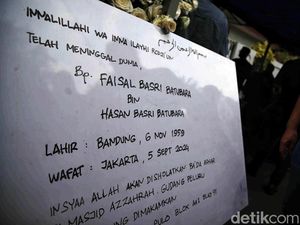 INNALILLAHI WA INNA ILAYHI ROJIUN
TELAH MENINGGAL DUNIA
Bp. FAISAL BASRI BATUBARA
BIN
HASAN BASRI BATUBARA
LAHIR : BANDUNG, 6 NOV 1959
WAFAT : JAKARTA, 5 SEPT 2024
INSYAA ALLAH AKAN DISHOLATKAN BA'DA ASHAR
MASJID AZZAHRAH. GUDANG PELURU
DIMAKAMKAN
PULO BLOK
detikcom